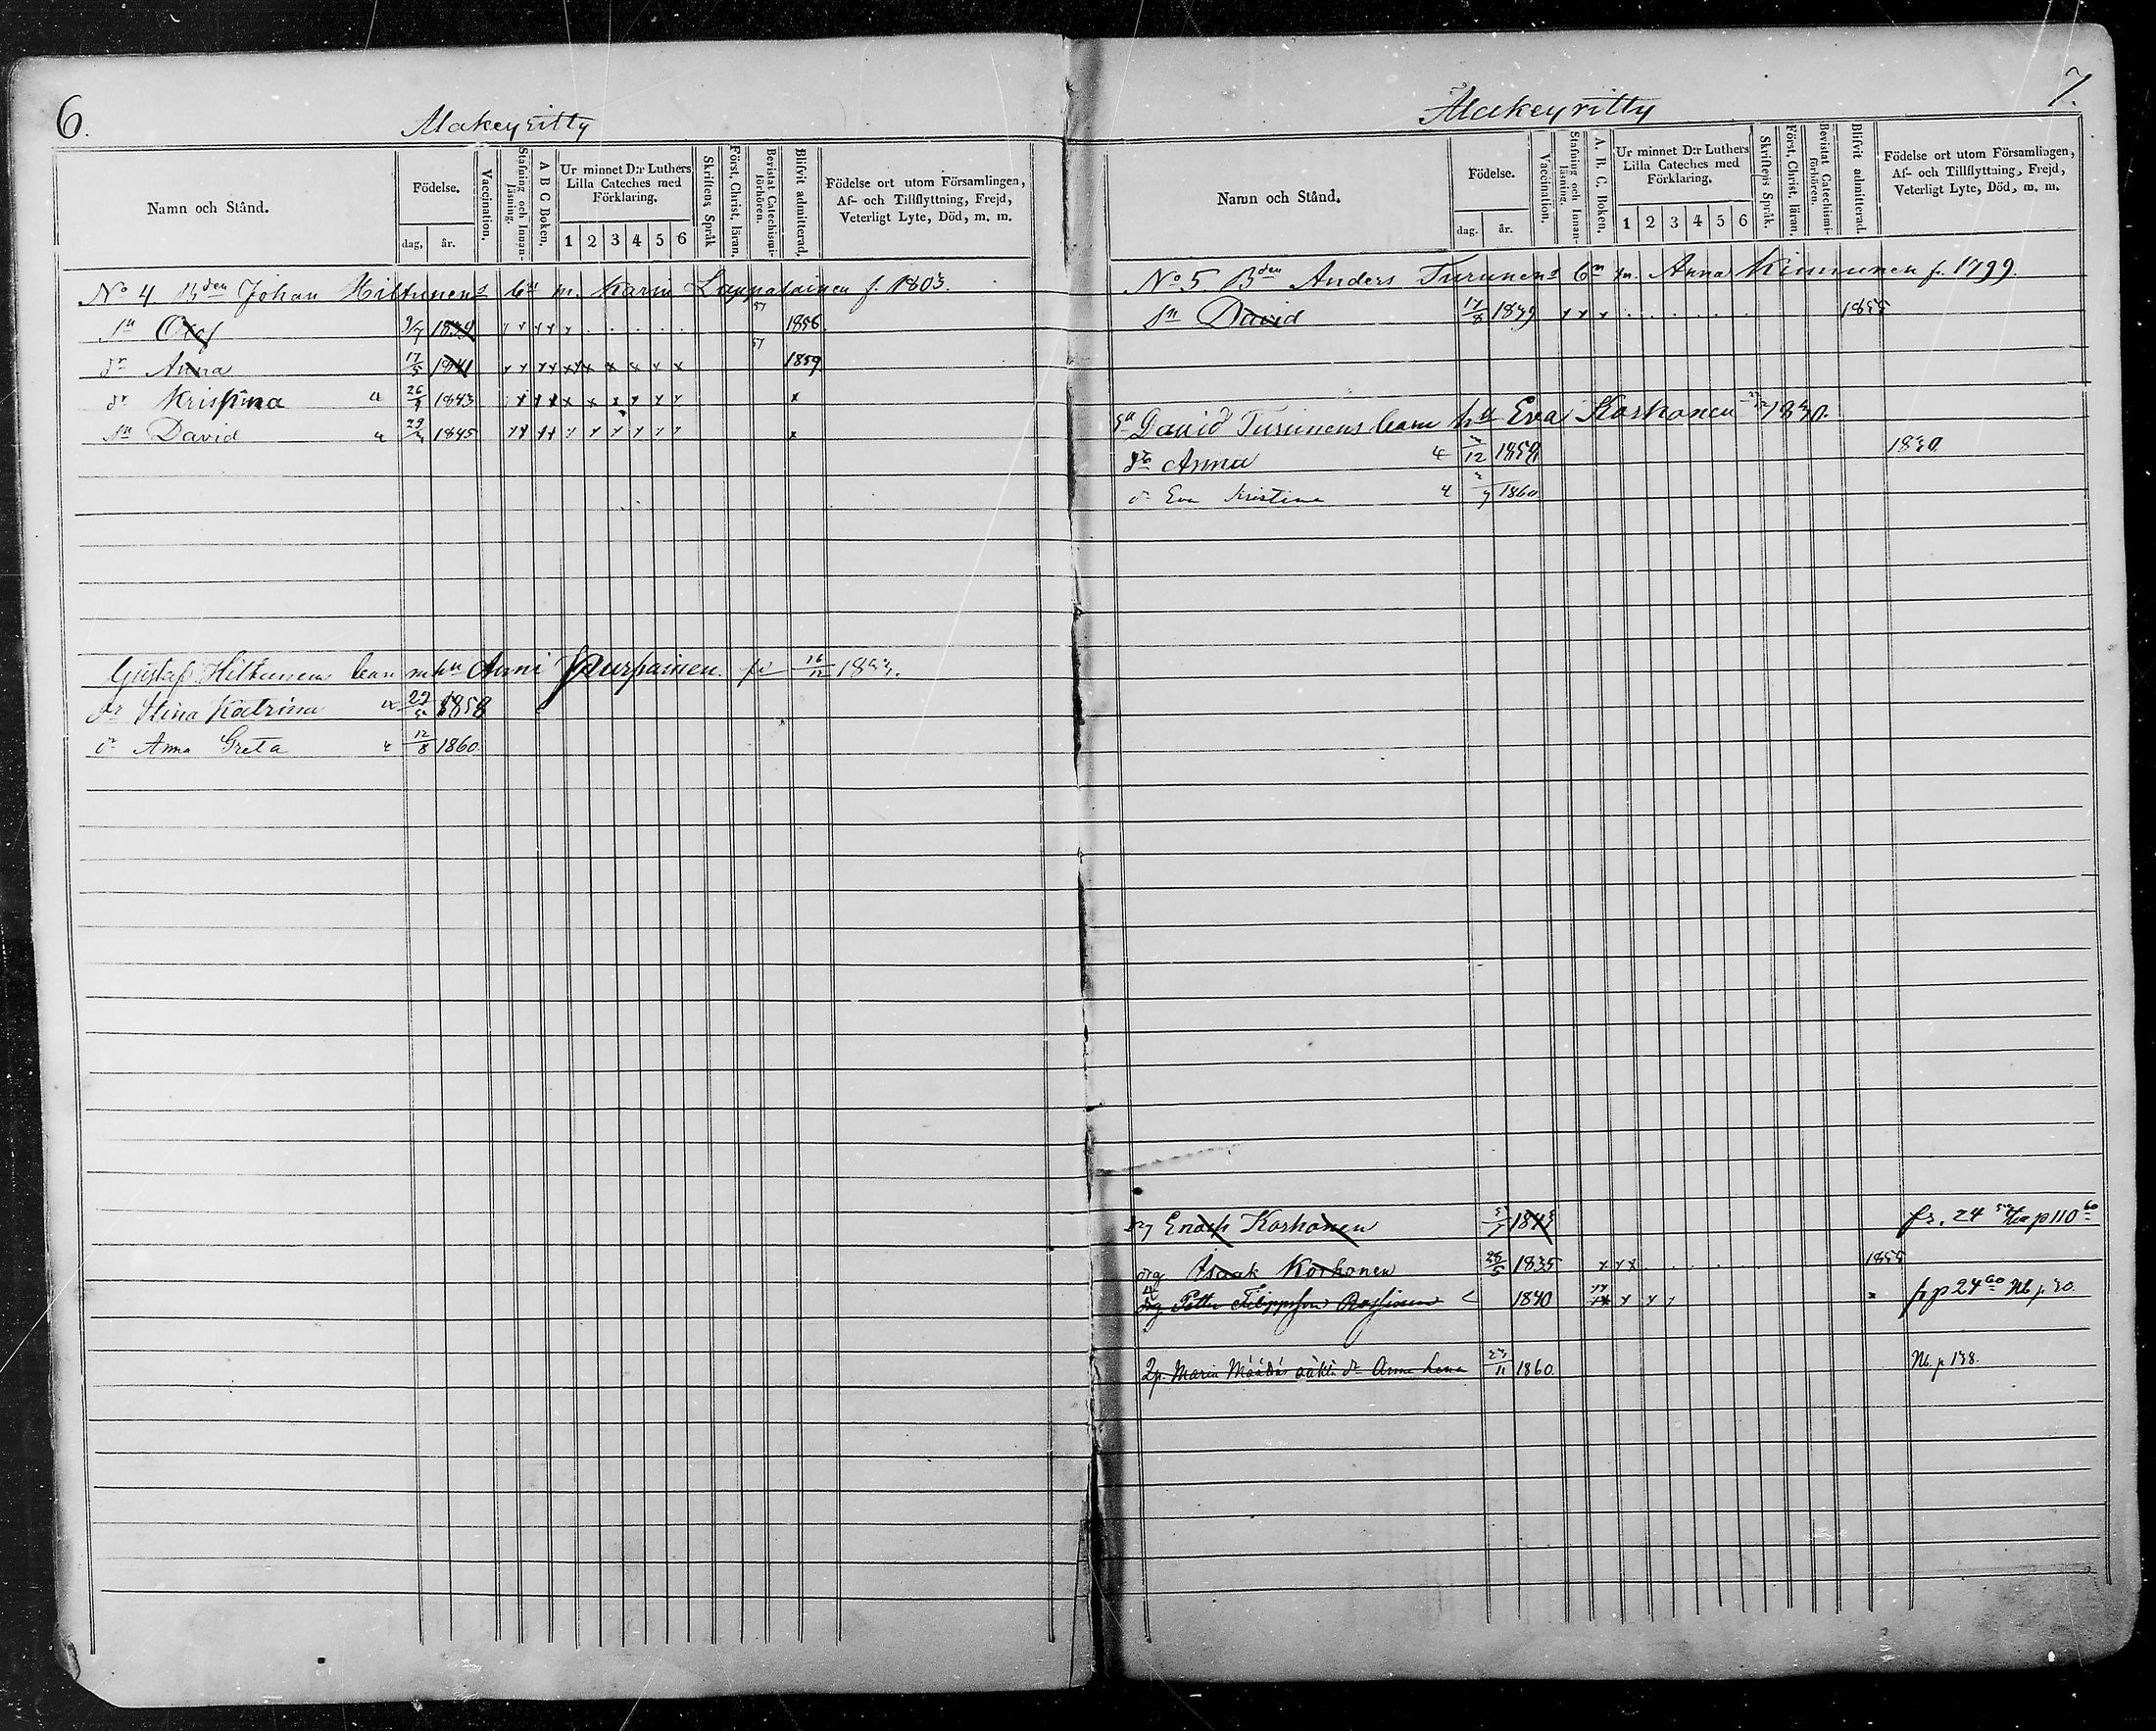 6.
Makeyritty
Namn och Stånd.
Födelse.
dag. år.
Vaccination.
Stafning och Innan-läsning.
A B C Boken.
Ur minnet D:r Luthers Lilla Cateches med Förklaring.
1 2 3 4 5 6
Skriftens Språk
Först. Christ. läran.
Bevistat Catechismi-förhören.
Blifvit admitterad.
Födelse ort utom Församlingen, Af- och Tillflyttning, Frejd, Veterligt Lyte, Död, m. m.
No 4. Bden Johan Hiltunens bn m. Karin Lappalainen f. 1803.
Sn Olof 9/7 1839 x x x x x 57 1856
dr Anna 17/5 1841 x x x x x x x x x x x 57 1859
dr Kristina 26/9 1843 x x x x x x x x x x
Sn David 29/ 1845 x x x x x x x x x x x
Gustaf Hiltunens barn m hu Anni Purpainen. 16/12
dr Stina Katrina 29/5 1858
dr Anna Greta 12/8 1860.
7.
Makeyritty
Namn och Stånd.
Födelse.
dag. år.
Vaccination.
Stafning och Innan-läsning.
A. B. C. Boken.
Ur minnet D:r Luthers Lilla Cateches med Förklaring.
1 2 3 4 5 6
Skriftens Språk.
Först. Christ. läran.
Bevistat Catechismi-förhören.
Blifvit admitterad.
Födelse ort utom Församlingen, Af- och Tillflyttning, Frejd, Veterligt Lyte, Död, m. m.
No 5. Bden Anders Turunens bn m. Anna Kinnunen f. 1799.
Sn David 17/8 1839 x x x 1855
Sn David Turunens barn hu Eva Korhonen 1830.
dr Anna /12 1859 1830
dr Eva Kristina 2/9 1860
Enoch Korhonen 5/7 1843 fr. 24 p 110 60
drg Isaak Korhonen 28/5 1835 x x x 1855
drg Petter Filippsson 1840 x x x x fr p 24 60 Nb p. 30.
2p. Maria dr Anna Lena 23/11 1860. Nb. p 138.